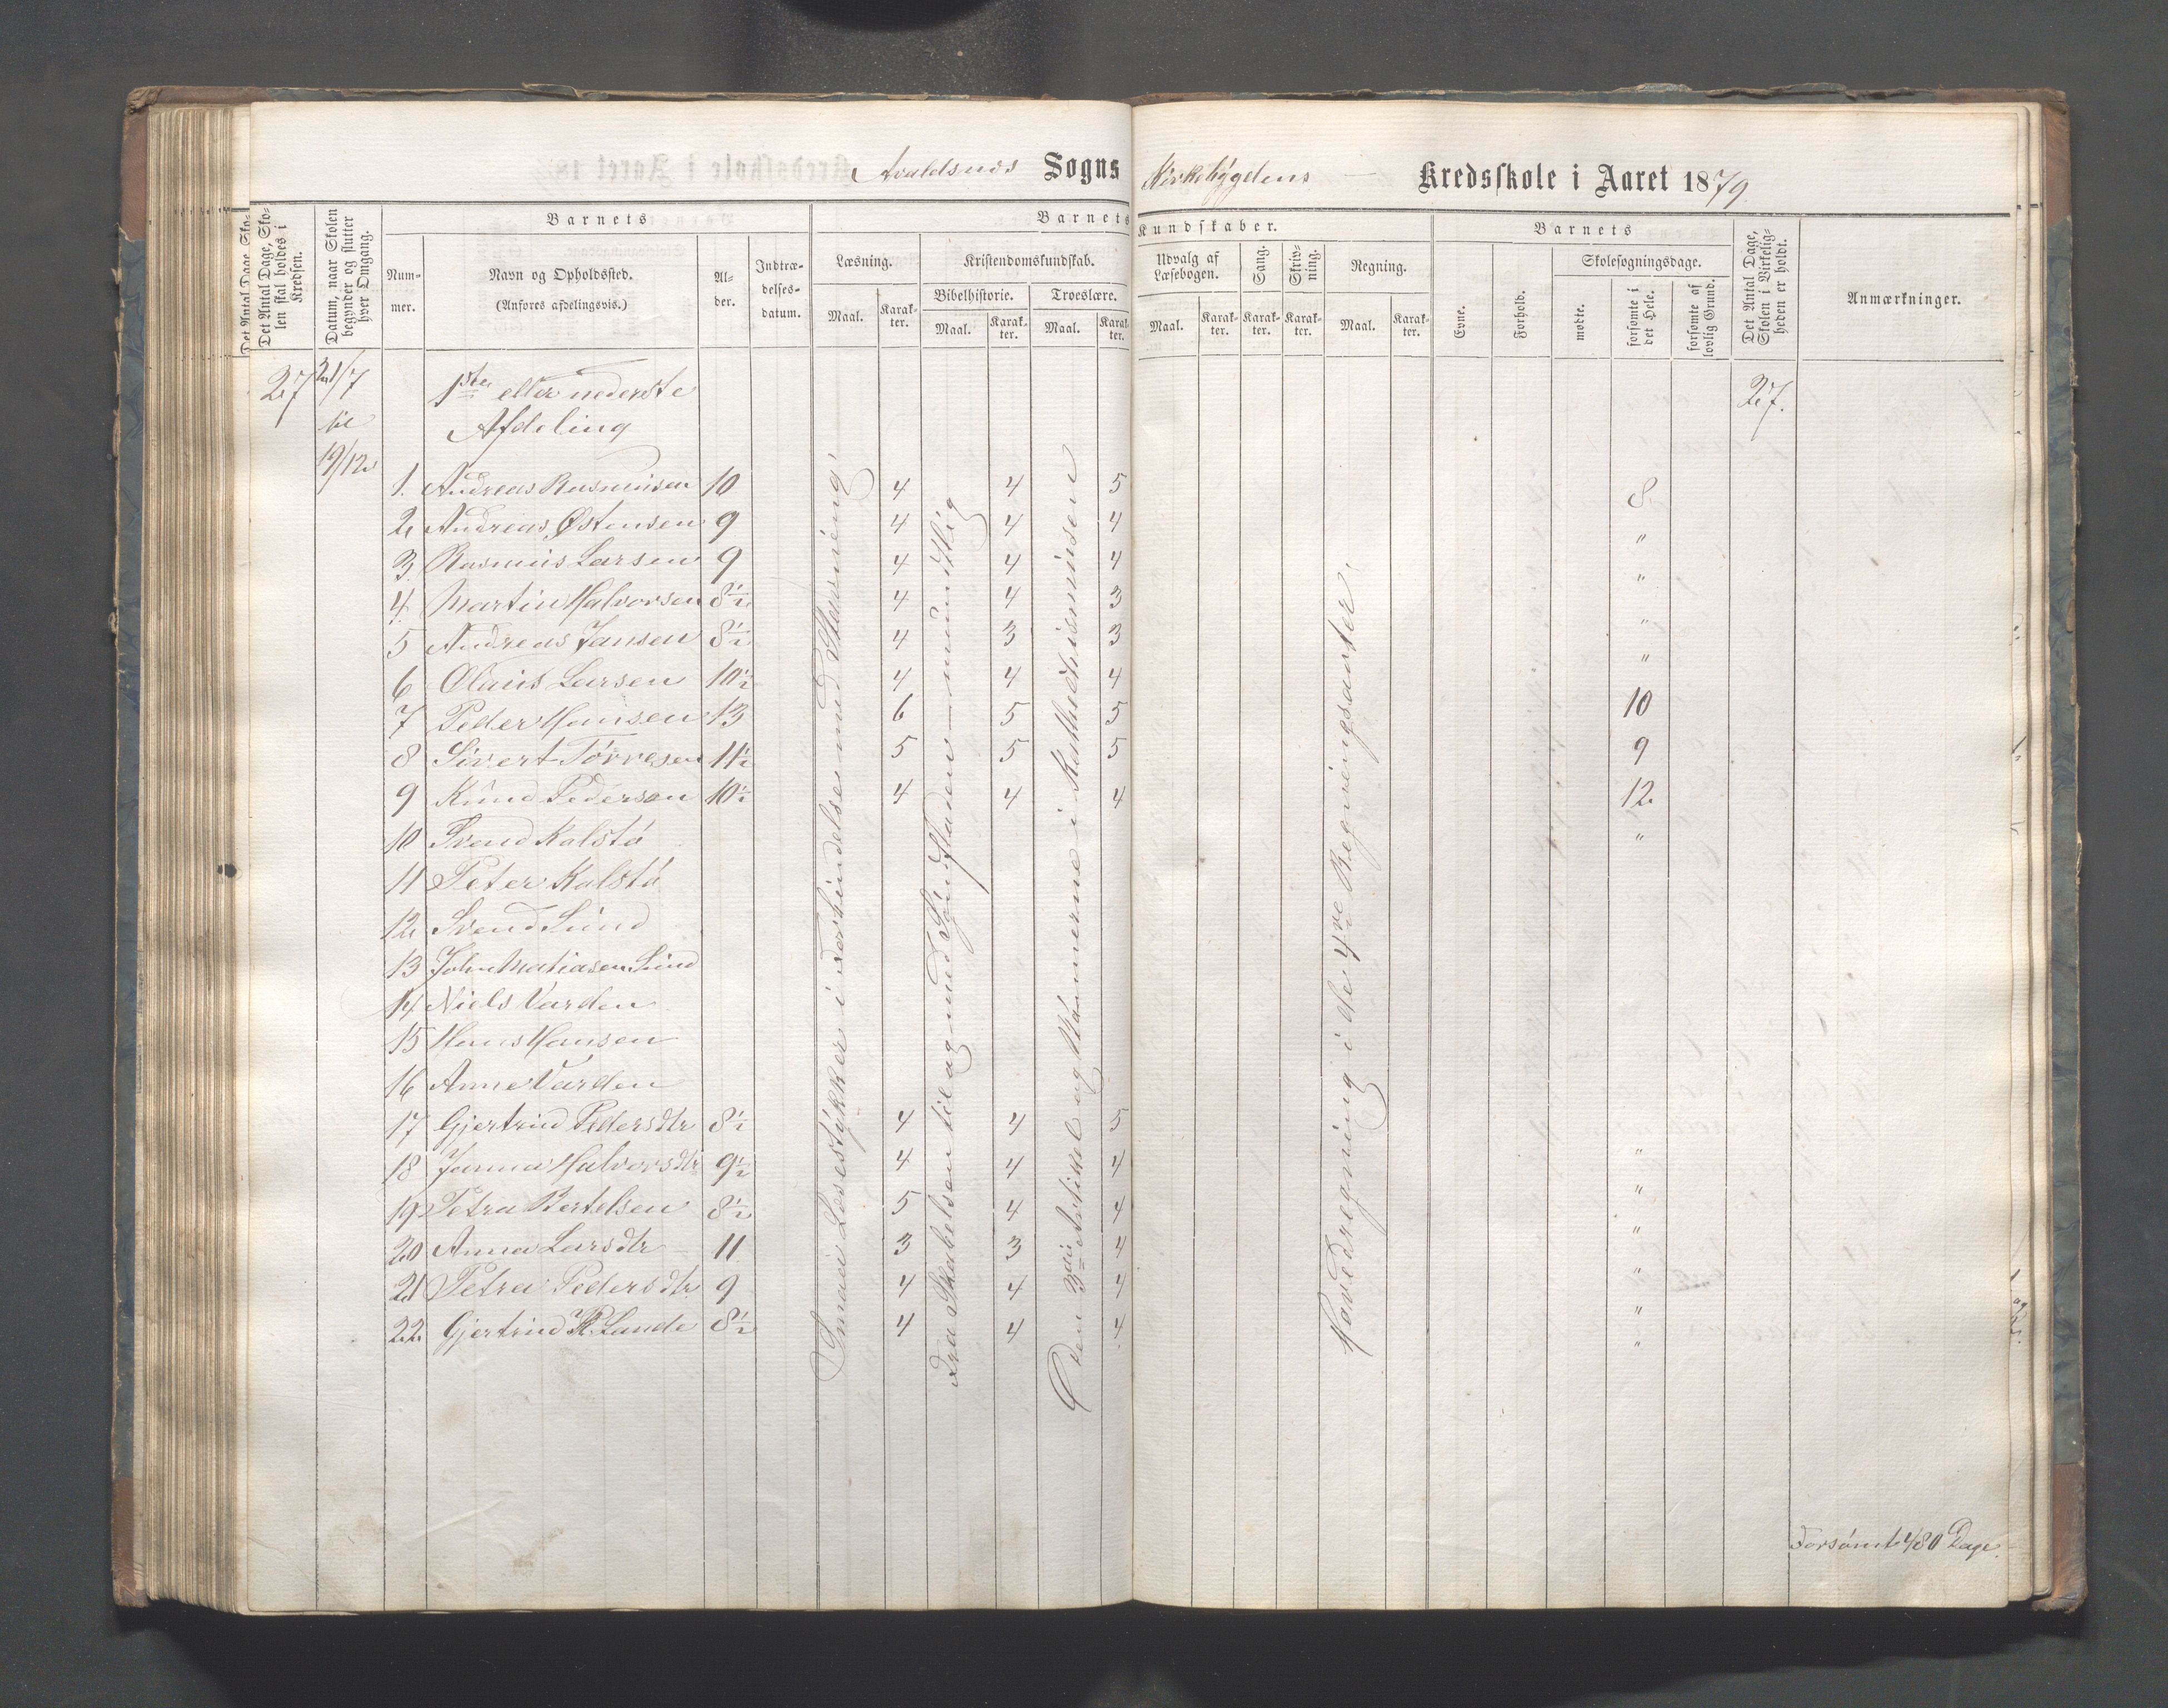 Avaldsnes Sogns Kirkebygdens Kredsskole i Aaret 1879.
Det Antal Dage, Skolen skal holdes i Kredsen.
Datum, naar Skolen begynder og slutter hver Omgang.
Barnets
Nummer.
Navn og Opholdssted.
(Anføres afdelingsvis.)
Alder.
Indtrædelsesdatum.
Barnets Kundskaber.
Læsning.
Maal.
Karakter.
Kristendomskundskab.
Bibelhistorie.
Maal.
Karakter.
Troeslære.
Maal.
Karakter.
Udvalg af Læsebogen.
Maal.
Karakter.
Sang.
Karakter.
Skrivning.
Karakter.
Regning.
Maal.
Karakter.
Barnets
Evne.
Forhold.
Skolesøgningsdage.
mødte.
forsømte i det Hele.
forsømte af lovlig Grund.
Det Antal Dage, Skolen i Virkeligheden er holdt.
Anmærkninger.
27 21/7 1ste eller nederste 27.
til Afdeling
19/12
1. Andreas Rasmussen 10 4 4 5 8
2 Andreas Østensen 9 4 4 4 "
3 Rasmus Larsen 9 4 4 4 "
4 Martin Halvorsen 8½ 4 4 3 "
5 Andreas Jansen 8½ 4 3 3 "
6 Olaus Larsen 10½ 4 4 4 10
7 Peder Hansen 13 6 5 5 9
8 Sivert Tørresen 11½ 5 5 5 12
9 Knud Pedersen 10½ 4 4 4 "
10 Svend Kalstø
11 Peter Kalstø
12 Svend Lund
13 John Matiasen Lund
14 Niels Varden
15 Hans Hansen
16 Anne Varden
17 Gjertrud Pedersdtr 8½ 4 4 5 "
18 Janna Halvorsdtr 9½ 4 4 4 "
19 Petra Bertelsen 8½ 5 4 4 "
20 Anna Larsdtr 11 3 3 4 "
21 Petra Pedersdtr 9 4 4 4 "
22 Gjertrud P. Lande 8½ 4 4 4 "
Smaa Læsestykker i Forbindelse med Stavning
Fra Skabelsen til og med Syndfloden - mundtlig
Den 3die Artikel og Navnerne i Kathechismusen
Hovedregning i de 4re Regningsarter.
Forsømt 480 Dage.